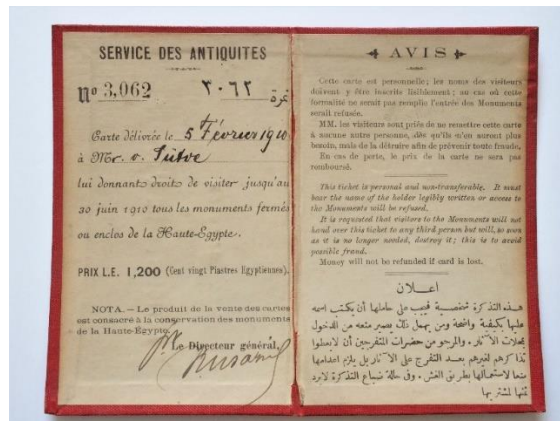 SERVICE DES ANTIQUITES
Nº 3,062 ٣٠٦٢ نمرة
Carte délivrée le 5 Février 1910
à Mr. v.
lui donnant droit de visiter jusqu'au
30 juin 1910 tous les monuments fermés
ou enclos de la Haute-Egypte.
PRIX L.E. 1,200 (Cent vingt Piastres Egyptiennes).
NOTA. — Le produit de la vente des cartes
est consacré à la conservation des monuments
de la Haute-Egypte.
Le Directeur général,
AVIS
Cette carte est personnelle; les noms des visiteurs
doivent y être inscrits lisiblement; au cas où cette
formalité ne serait pas remplie l'entrée des Monuments
serait refusée.
MM. les visiteurs sont priés de ne remettre cette carte
à aucune autre personne, dès qu'ils n'en auront plus
besoin, mais de la détruire afin de prévenir toute fraude.
En cas de perte, le prix de la carte ne sera pas
remboursé.
This ticket is personal and non-transferable. It must
bear the name of the holder legibly written or access to
the Monuments will be refused.
It is requested that visitors to the Monuments will not
hand over this ticket to any third person but will, so soon
as it is no longer needed, destroy it; this is to avoid
possible fraud.
Money will not be refunded if card is lost.
اعلان
هذه التذكرة شخصية فيجب على حاملها أن يكتب اسمه
عليها بكيفية واضحة ومن يهمل ذلك يصير منعه من الدخول
بمحلات الآثار . والمرجو من حضرات المتفرجين أن لا يعطوا
تذاكرهم لغيرهم بعد التفرج على الآثار بل يلزم اعدامها
منعا لاستعمالها بطريق الغش . وفي حالة ضياع التذكرة لا يرد
ثمنها لمشتريها